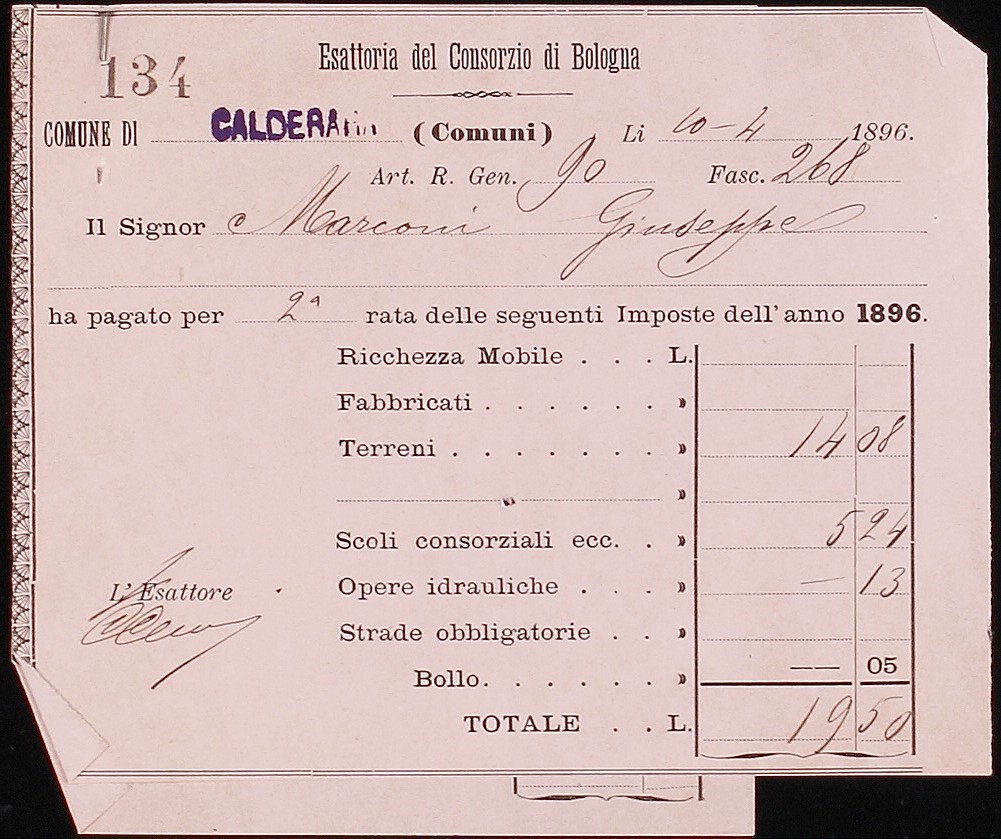 Esattoria del Consorzio di Bologna
134
COMUNE DI CALDERARA (Comuni) Li 10-4 1896.
Art. R. Gen. 90 Fasc. 268
Il Signor Marconi Giuseppe
ha pagato per 2ª rata delle seguenti Imposte dell'anno 1896.
Ricchezza Mobile . . . L.
Fabbricati . . . . . . »
Terreni . . . . . . . » 14 08
»
Scoli consorziali ecc. . » 5 24
Opere idrauliche . . . » — 13
L'Esattore
Strade obbligatorie . . »
Bollo. . . . . . » —— 05
TOTALE . . L. 19 50